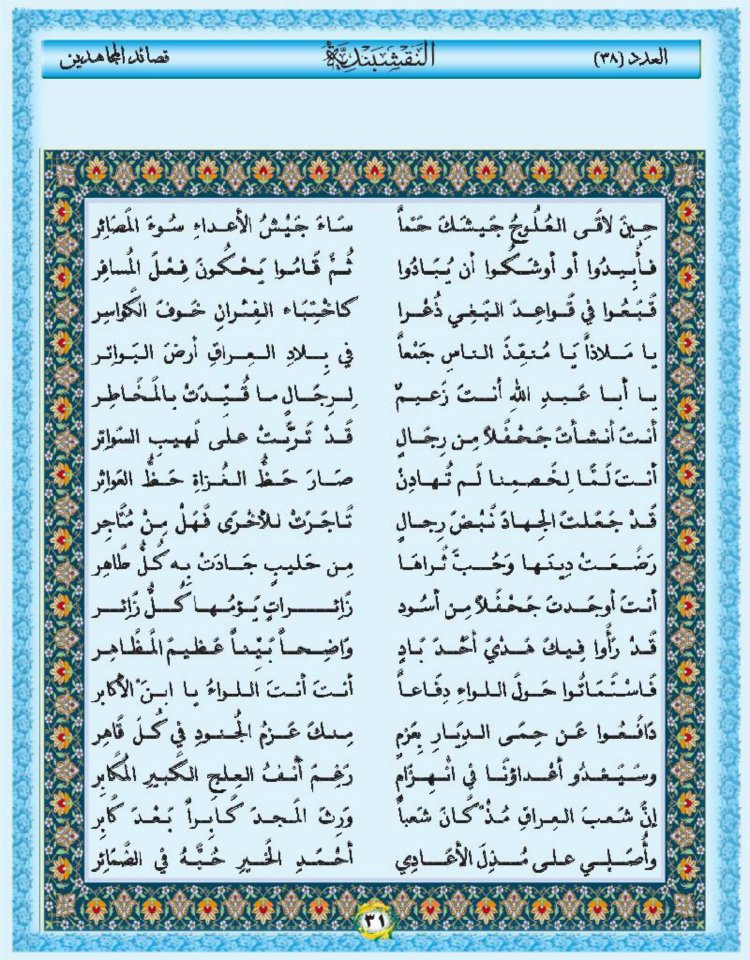 العدد (٣٨) النقشبندية قصائد المجاهدين
حِينَ لاقَى العُلُوجُ جَيشَكَ حَتماً سَاءَ جَيْشُ الأعداءِ سُوءَ المَصَائِر
فأُبِيدُوا أو أوشَكُوا أن يُبَادُوا ثُمَّ قَامُوا يَحْكُونَ فِعْلَ المُسافِر
قَبَعُوا في قَواعِدَ البَغي ذُعْرا كاخْتِبَاء الفِئرانِ خَوفَ الكَواسِر
يا مَلاذاً يَا مُنقِذَ الناسِ جَمْعاً في بِلادِ العِراقِ أرضَ البَواتِر
يا أبا عَبدِ اللهِ أنتَ زَعيمٌ لِرِجَالٍ ما قُيِّدَتْ بالمَخَاطِر
أنتَ أنشأتَ جَحْفَلاً مِن رِجَالٍ قَدْ تَرَبَّتْ على لَهيبِ السَواتِر
أنتَ لَمَّا لِخَصمِنا لَم تُهادِنْ صَارَ حَظُّ الغُزاةِ حَظُّ العَواثِر
قَدْ جَعَلتَ الجِهادَ نَبْضَ رِجالٍ تَاجَرَتْ للأُخْرَى فَهَلْ مِنْ مُتَاجِر
رَضَعَتْ دِينَها وَحُبَّ ثَراهَا مِن حَليبٍ جَادَتْ بِه كُلُّ طَاهِر
أنتَ أوجَدتَ جَحْفَلاً مِن أسُود زَائِراتٍ يَؤمُها كُلُّ زَائِر
قَدْ رَأَوا فِيكَ هَديَ أحْمَدَ بَادٍ وَاضِحاً بَيِّناً عَظيمَ المَظَاهِر
فَاستَمَاتُوا حَولَ اللواءِ دِفَاعاً أنتَ أنتَ اللواءُ يا ابنَ الأكابِر
دَافَعُوا عَن حِمَى الدِيَارِ بِعَزمٍ مِنكَ عَزمُ الجُنودِ في كُلَ قَاهِر
وسَيَغدُو أعْداؤنَا في انْهِزَامٍ رَغِمَ أنفُ العِلجِ الكَبيرِ المُكابِر
إنَّ شَعبَ العِراقِ مُذْ كَانَ شَعباً وَرِثَ المَجدَ كَابِراً بَعْدَ كَابِر
وأُصَلِي على مُذِلَ الأعَادِي أحْمَدِ الخَيرِ حُبَّهُ في الضَّمَائِر
٣١